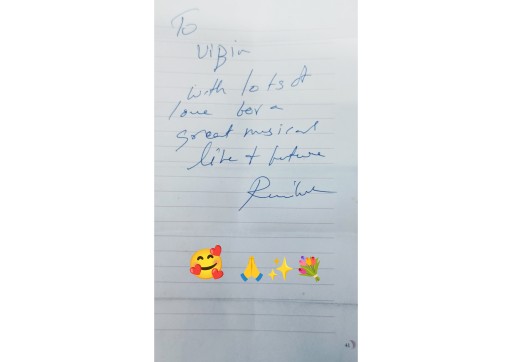 To
Vibin
with lots of
love for a
great musical
life + future